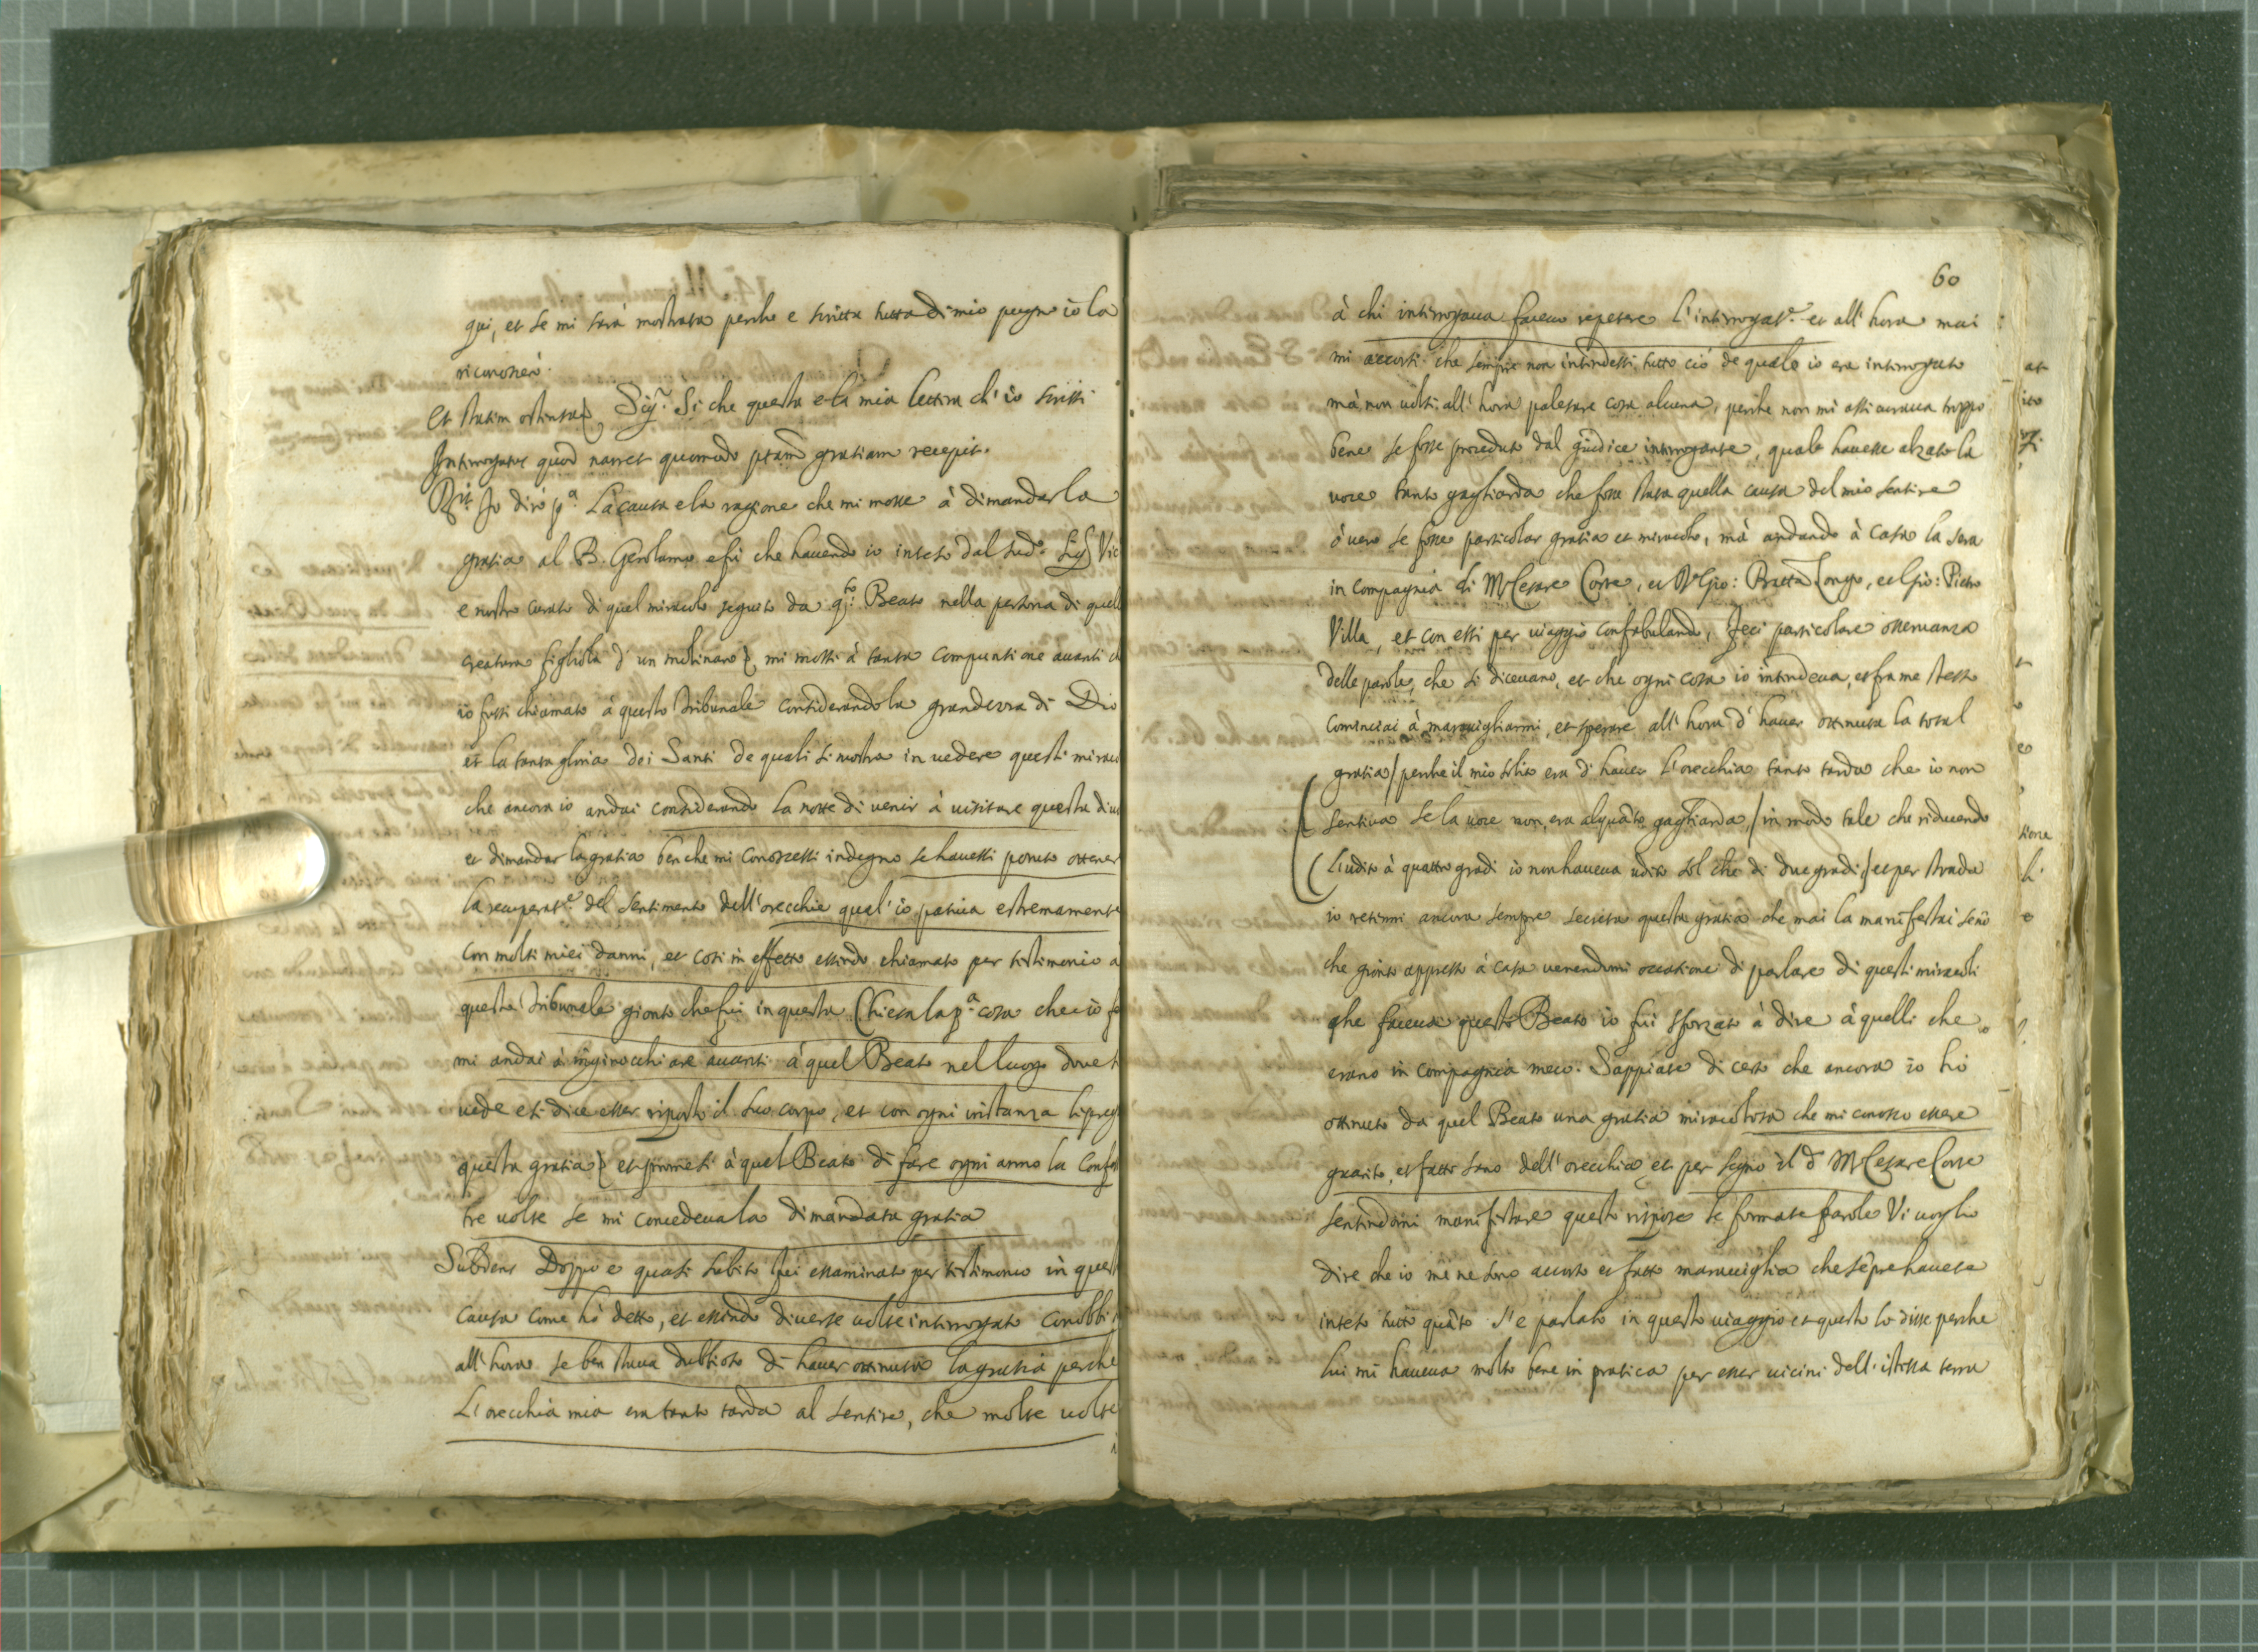 qui, et se mi sarà mostrata perche e scritta tutta di mio pugno io la
riconoscerò.
Et statim ostensa, Sigr. Si che questa e la mia lettera ch'io scrissi
Interrogatus quod narret quomodo ptam gratiam recepit.
Rit. Io dirò pa. La causa e la ragione che mi mosse à dimandar la
gratia al B. Gerolamo e fù che havendo io inteso dal sudo. Sig. Vic
e nostro curato di quel miracolo seguito da qto. Beato nella persona di quella
creatura figliola d'un molinaro, mi mossi à tanta compuntione avanti ch
io fussi chiamato à questo tribunale considerando la grandezza di Dio
et la tanta gloria dei Santi de quali si mostra in vedere questi mirac
che ancora io andai considerando la notte di venir à visitare questa div
et dimandar la gratia ben che mi conoscessi indegno se havessi potuto ottener
la recuperate. del sentimento dell'orecchie qual'io pativa estremamente
con molti miei danni, et così in effetto essendo chiamato per testimonio à
questo tribunale gionto che fui in questa Chiesa la pa. cosa che io fe
mi andai à inginocchiare avanti à quel Beato nel luogo dove s
vede et si dice esser riposto il suo corpo, et con ogni instanza li preg
questa gratia et promesi à quel Beato di fare ogni anno la Confess
tre volte se mi concedeva la dimandata gratia
Subdens Doppo e quasi subito fui essaminato per testimonio in quest
causa come hò detto, et essendo diverse volte interrogato conobbi
all'hora se ben stava dubbioso di haver ottenuta la gratia perche
L'orecchia mia era tanto tarda al sentire, che molte volte
60
à chi interrogava facevo repetere l'interrogate. et all'hora mai
mi accorsi che sempre non intendessi tutto ciò de quale io era interrogato
mà non volsi all'hora palesare cosa alcuna, perche non mi assicurava troppo
bene se fosse proceduto dal giudice interrogante, quale havesse alzato la
voce tanto gagliarda che fosse stata quella causa del mio sentire
ò vero se fosse particolar gratia et miracolo, mà andando à casa la sera
in compagnia di M. Cesare Corse, et Gio: Batta Longo, et Gio: Pietro
Villa, et con essi per viaggio confabulando, feci particolare osservanza
delle parole, che si dicevano, et che ogni cosa io intendeva, et fra me stesso
cominciai à maravigliarmi, et sperare all'hora d'haver ottenuta la total
gratia / perche il mio solito era d'haver l'orecchia tanto tarda che io non
sentiva se la voce non era alquãto gagliarda, / in modo tale che riducendo
l'udito à quattro gradi io non haveva udito sol che di due gradi / et per strada
io retenni ancora sempre secreta questa gratia che mai la manifestai senõ
che gionto appresso à casa venendomi occasione di parlare di questi miracoli
che faceva questo Beato io fui sforzato à dire à quelli che
erano in compagnia meco. Sappiate di certo che ancora io hò
ottenuto da quel Beato una gratia miracolosa che mi conosco essere
guarito, et fatto sano dell'orecchia et per segno il do. M. Cesare Corse
sentendomi manifestare questo rispose le formate parole Vi voglio
dire che io me ne sono accorto et fatto maraviglia che sẽpre havete
inteso tutto quãto s'e parlato in questo viaggio et questo lo disse perche
lui mi haveva molto bene in pratica per esser vicini dell'istessa terra